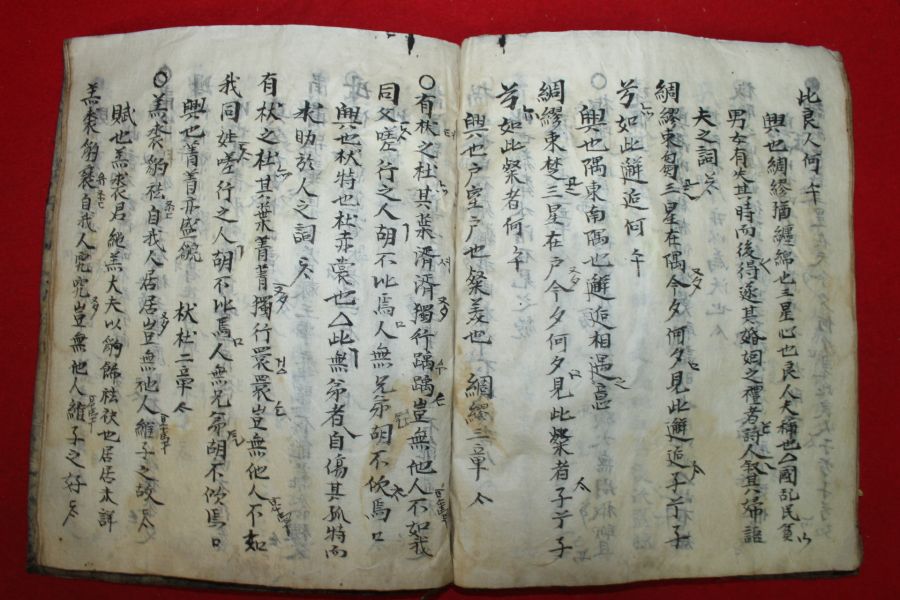 此良人何
興也綢繆猶纏綿也三星心也良人夫稱也△國乱民貧
男女有失其時而後得遂其婚姻之禮者詩人叙其婦語
夫之詞
綢繆束芻三星在隅今夕何夕見此邂逅子兮子
兮如此邂逅何
○興也隅東南隅也邂逅相遇意
綢繆束楚三星在戶今夕何夕見此粲者子兮子
兮如此粲者何
興也戶室戶也粲美也 綢繆三章
○有杕之杜其葉湑湑獨行踽踽豈無他人不如我
同父嗟行之人胡不比焉人無兄弟胡不佽焉
興也杕特也杜赤棠也△此無弟者自傷其孤特而
求助於人之詞
有杕之杜其葉菁菁獨行睘睘豈無他人不如
我同姓嗟行之人胡不比焉人無兄弟胡不佽焉
興也菁菁亦盛貌 杕杜二章
○羔裘豹袪自我人居居豈無他人維子之故
賦也羔裘君純羔大夫以豹飾袪袂也居居未詳
羔裘豹褎自我人究究豈無他人維子之好